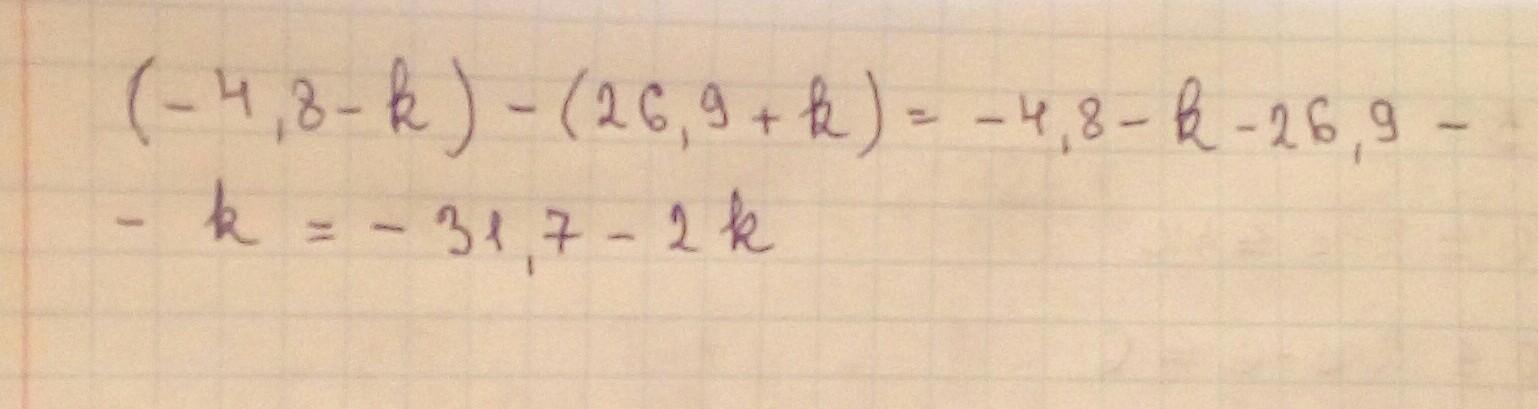 (-4,8-k)-(26,9+k)=-4,8-k-26,9-
-k=-31,7-2k